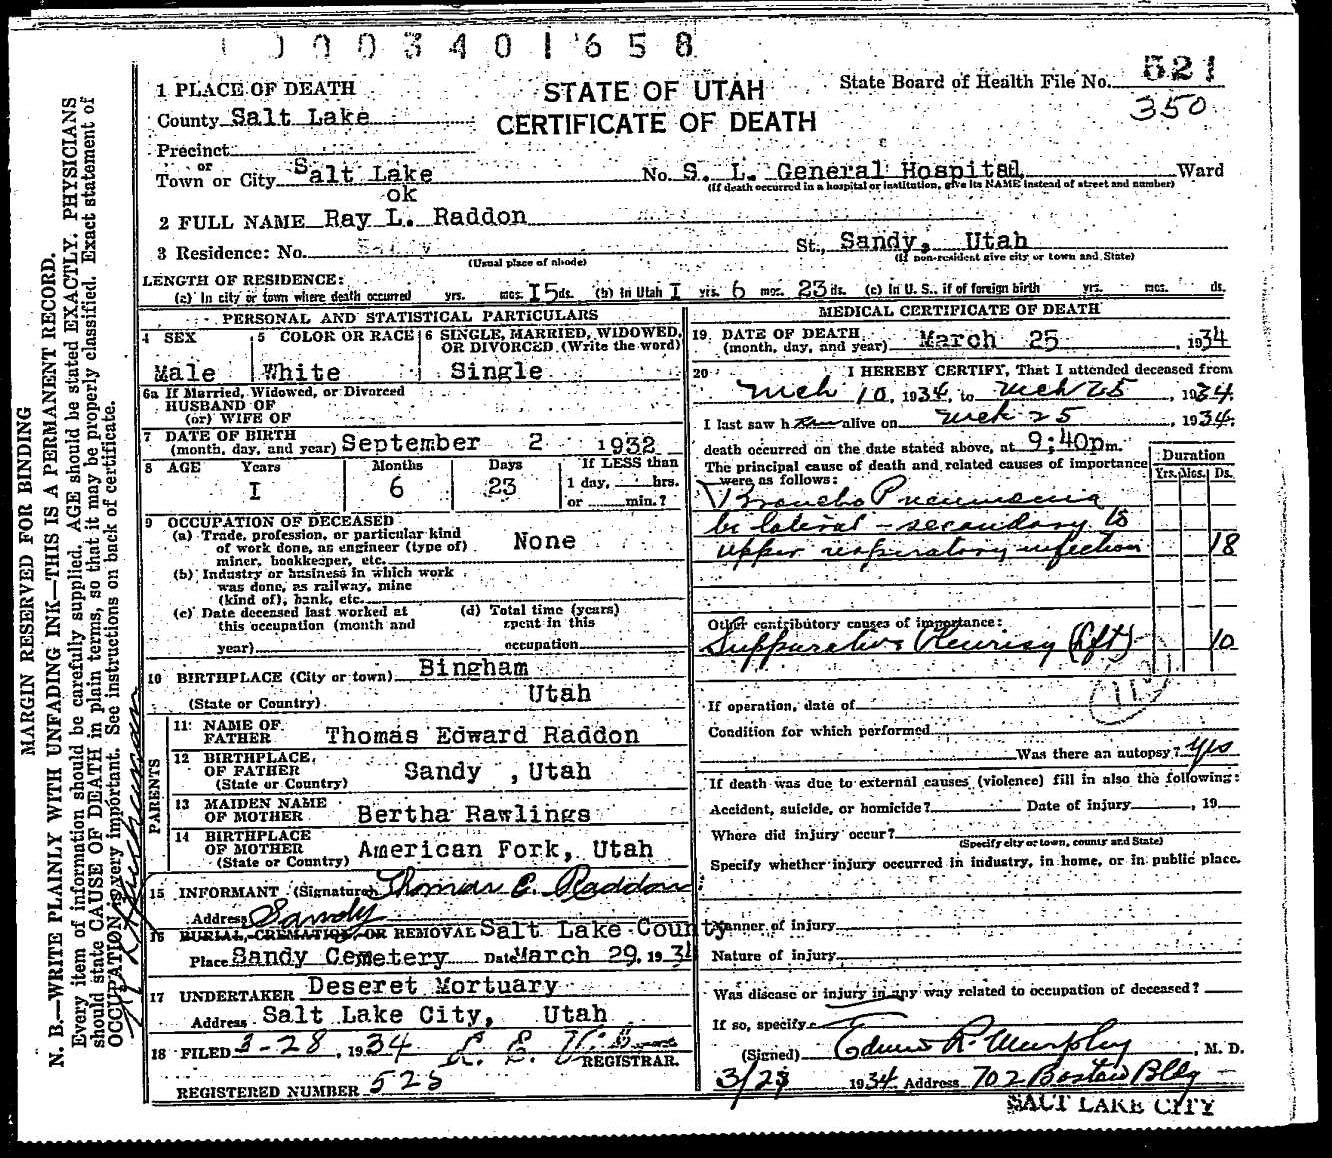 0003401658
1 PLACE OF DEATH
STATE OF UTAH
CERTIFICATE OF DEATH
State Board of Health File No. 521
350
County Salt Lake
Precinct
or
Town or City Salt Lake
No. S. L. General Hospital, Ward
(If death occurred in a hospital or institution, give its NAME instead of street and number)
ok
2 FULL NAME Ray L. Raddon
3 Residence: No. St., Sandy, Utah
(Usual place of abode) (If non-resident give city or town and State)
LENGTH OF RESIDENCE:
(a) In city or town where death occurred yrs. mos. I5 ds. (b) In Utah I yrs. 6 mos. 23 ds. (c) In U. S., if of foreign birth yrs. mos. ds.
PERSONAL AND STATISTICAL PARTICULARS
4 SEX
Male
5 COLOR OR RACE
White
6 SINGLE, MARRIED, WIDOWED, OR DIVORCED (Write the word)
Single
6a If Married, Widowed, or Divorced
HUSBAND OF
(or) WIFE OF
7 DATE OF BIRTH
(month, day, and year) September 2 1932
8 AGE Years Months Days If LESS than
I 6 23 1 day, hrs.
or min.?
9 OCCUPATION OF DECEASED
(a) Trade, profession, or particular kind
of work done, as engineer (type of)
miner, bookkeeper, etc. None
(b) Industry or business in which work
was done, as railway, mine
(kind of), bank, etc.
(c) Date deceased last worked at
this occupation (month and
year)
(d) Total time (years)
spent in this
occupation
10 BIRTHPLACE (City or town) Bingham
(State or Country) Utah
PARENTS
11 NAME OF
FATHER Thomas Edward Raddon
12 BIRTHPLACE,
OF FATHER Sandy , Utah
(State or Country)
13 MAIDEN NAME
OF MOTHER Bertha Rawlings
14 BIRTHPLACE
OF MOTHER American Fork, Utah
(State or Country)
15 INFORMANT (Signature) Thomas E. Raddon
Address Sandy
16 BURIAL, CREMATION, OR REMOVAL Salt Lake County
Place Sandy Cemetery Date March 29, 1934
17 UNDERTAKER Deseret Mortuary
Address Salt Lake City, Utah
18 FILED 3-28, 1934
REGISTRAR.
REGISTERED NUMBER 525
MEDICAL CERTIFICATE OF DEATH
19 DATE OF DEATH
(month, day, and year) March 25, 1934
20 I HEREBY CERTIFY, That I attended deceased from
Mch 10, 1934, to Mch 25, 1934.
I last saw h alive on Mch 25, 1934.
death occurred on the date stated above, at 9;40p m.
The principal cause of death and related causes of importance
were as follows:
Duration
Yrs. Mos. Ds.
Broncho Pneumonia
bi lateral - secondary to
upper respiratory infection 18
Other contributory causes of importance:
Suppurative Pleurisy (lft) 10
If operation, date of
Condition for which performed
Was there an autopsy? yes
If death was due to external causes (violence) fill in also the following:
Accident, suicide, or homicide? Date of injury , 19
Where did injury occur?
(Specify city or town, county and State)
Specify whether injury occurred in industry, in home, or in public place.
Manner of injury
Nature of injury
Was disease or injury in any way related to occupation of deceased?
If so, specify
(Signed) Edwin R. Murphy, M. D.
3/28 1934 Address 702 Boston Bldg
SALT LAKE CITY
MARGIN RESERVED FOR BINDING
N. B.—WRITE PLAINLY WITH UNFADING INK—THIS IS A PERMANENT RECORD.
Every item of information should be carefully supplied. AGE should be stated EXACTLY. PHYSICIANS
should state CAUSE OF DEATH in plain terms, so that it may be properly classified. Exact statement of
OCCUPATION is very important. See instructions on back of certificate.